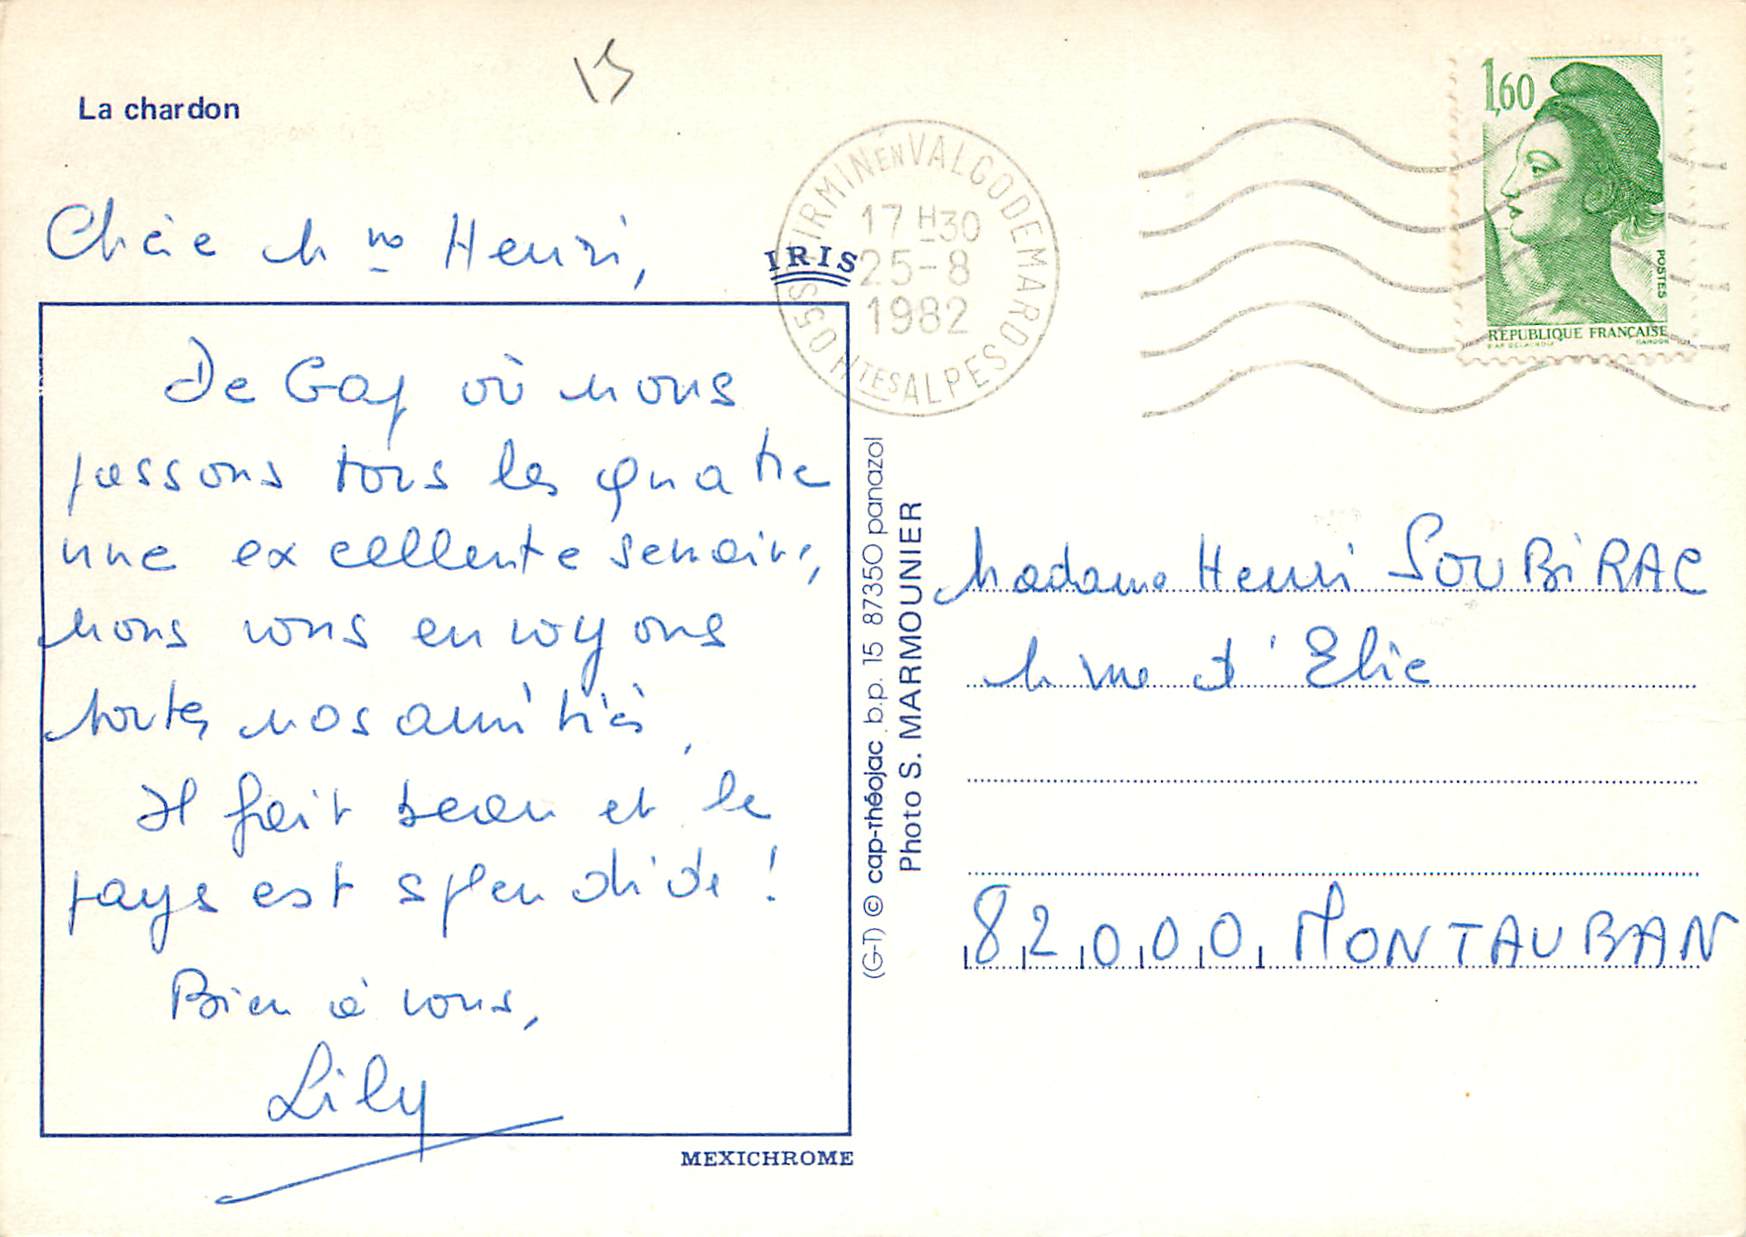 La chardon
15
Chère Mme Henri,
De Gap où nous
passons tous les quatre
une excellente semaine,
nous vous envoyons
toutes nos amitiés.
Il fait beau et le
pays est splendide !
Bien à vous,
Lily
MEXICHROME
IRIS
05 ST FIRMIN EN VALGODEMARD HTES ALPES
17 H30
25-8
1982
1,60
POSTES
RÉPUBLIQUE FRANÇAISE
D'AP. DELACROIX GANDON
(G-T) © cap-théojac b.p. 15 87350 panazol
Photo S. MARMOUNIER
Madame Henri SOUBiRAC
rue d'Elie
82000 MONTAUBAN